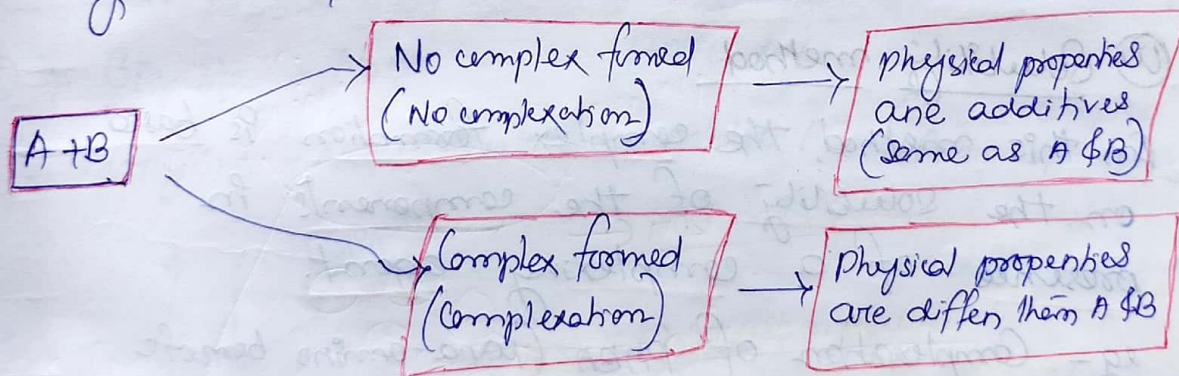 A+B
No complex formed
(No complexation)
physical properties
are additives
(same as A & B)
Complex formed
(Complexation)
Physical properties
are differ them A & B